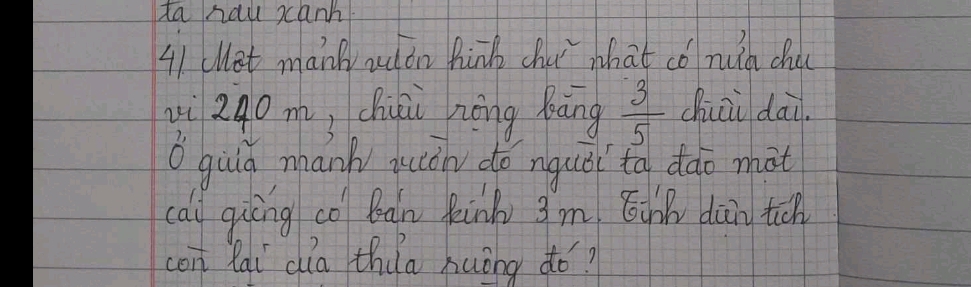 ta rau xanh.
4) Một mảnh vườn hình chữ nhật có nửa chu
vi 240 m, chiều rộng bằng 3/5 chiều dài.
Ở giữa mảnh vườn đó người ta đào một
cái giếng có bán kính 3 m. Tính diện tích
còn lại của thửa ruộng đó?